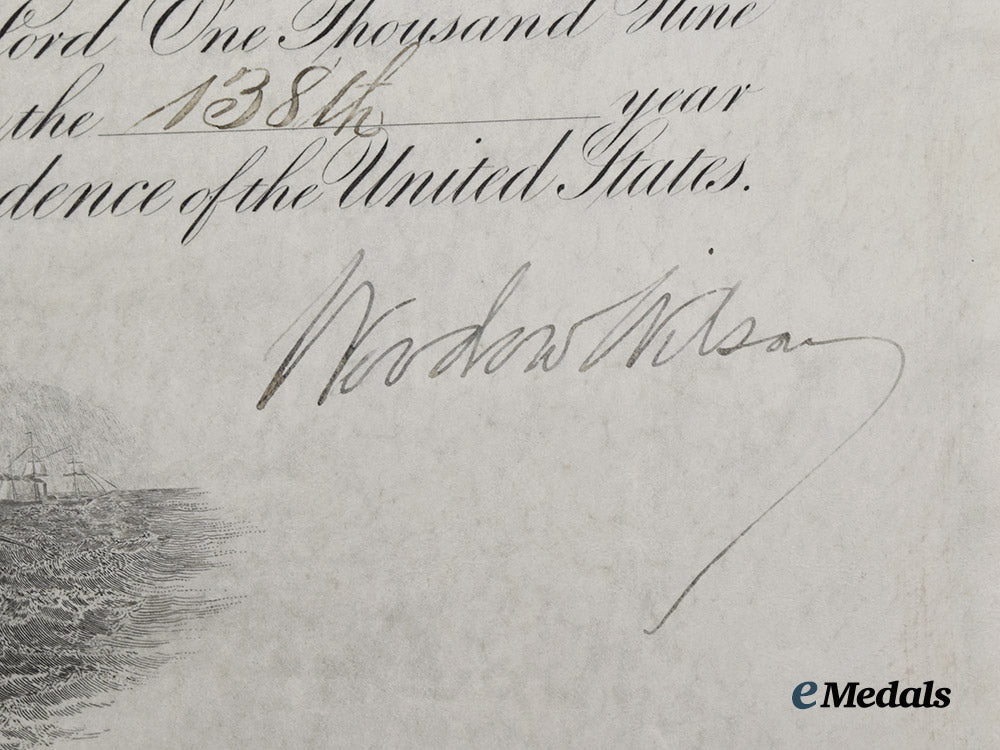 Lord One Thousand Nine
the 138th year
dence of the United States.
Woodrow Wilson
eMedals